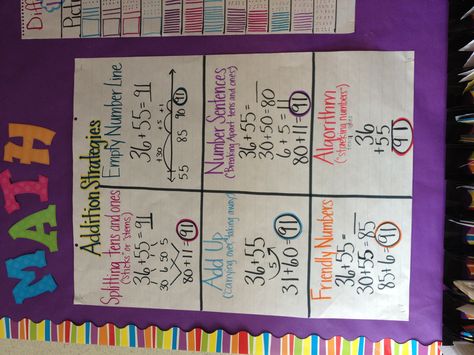 MATH
Addition Strategies
Splitting Tens and ones
(sticks or stems)
36+55= 91
30 6 50 5
80+11=91
Empty Number Line
36+55=91
+30 +5 +1
55 85 90 91
Add Up
(carrying over/taking away)
36+55
5
31+60=91
Number Sentences
(Breaking Apart tens and ones)
36+55=
30+50=80
6+5=11
80+11=91
Friendly Numbers
36+55=
30+55=85
85+6=91
Algorithm
("stacking numbers")
36
+55
91